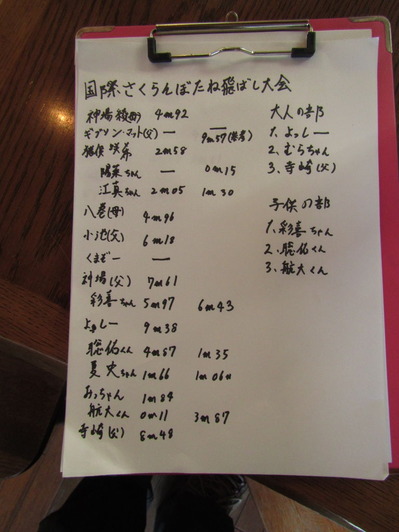 国際さくらんぼたね飛ばし大会
神場 (母) 4m92
ギブソン・マット(父) — — 9m57(参考)
咲希 2m58
陽菜ちゃん — 0m15
江真ちゃん 2m05 1m30
八巻(母) 4m96
小池(父) 6m18
くまぞー —
神場(父) 7m61
彩喜ちゃん 5m97 6m43
よっしー 9m38
聡佑くん 4m57 1m35
夏史ちゃん 1m66 1m06
みっちゃん 1m84
航大くん 0m11 3m87
寺崎(父) 8m48
大人の部
1. よっしー
2. むらちゃん
3. 寺崎(父)
子供の部
1. 彩喜ちゃん
2. 聡佑くん
3. 航大くん